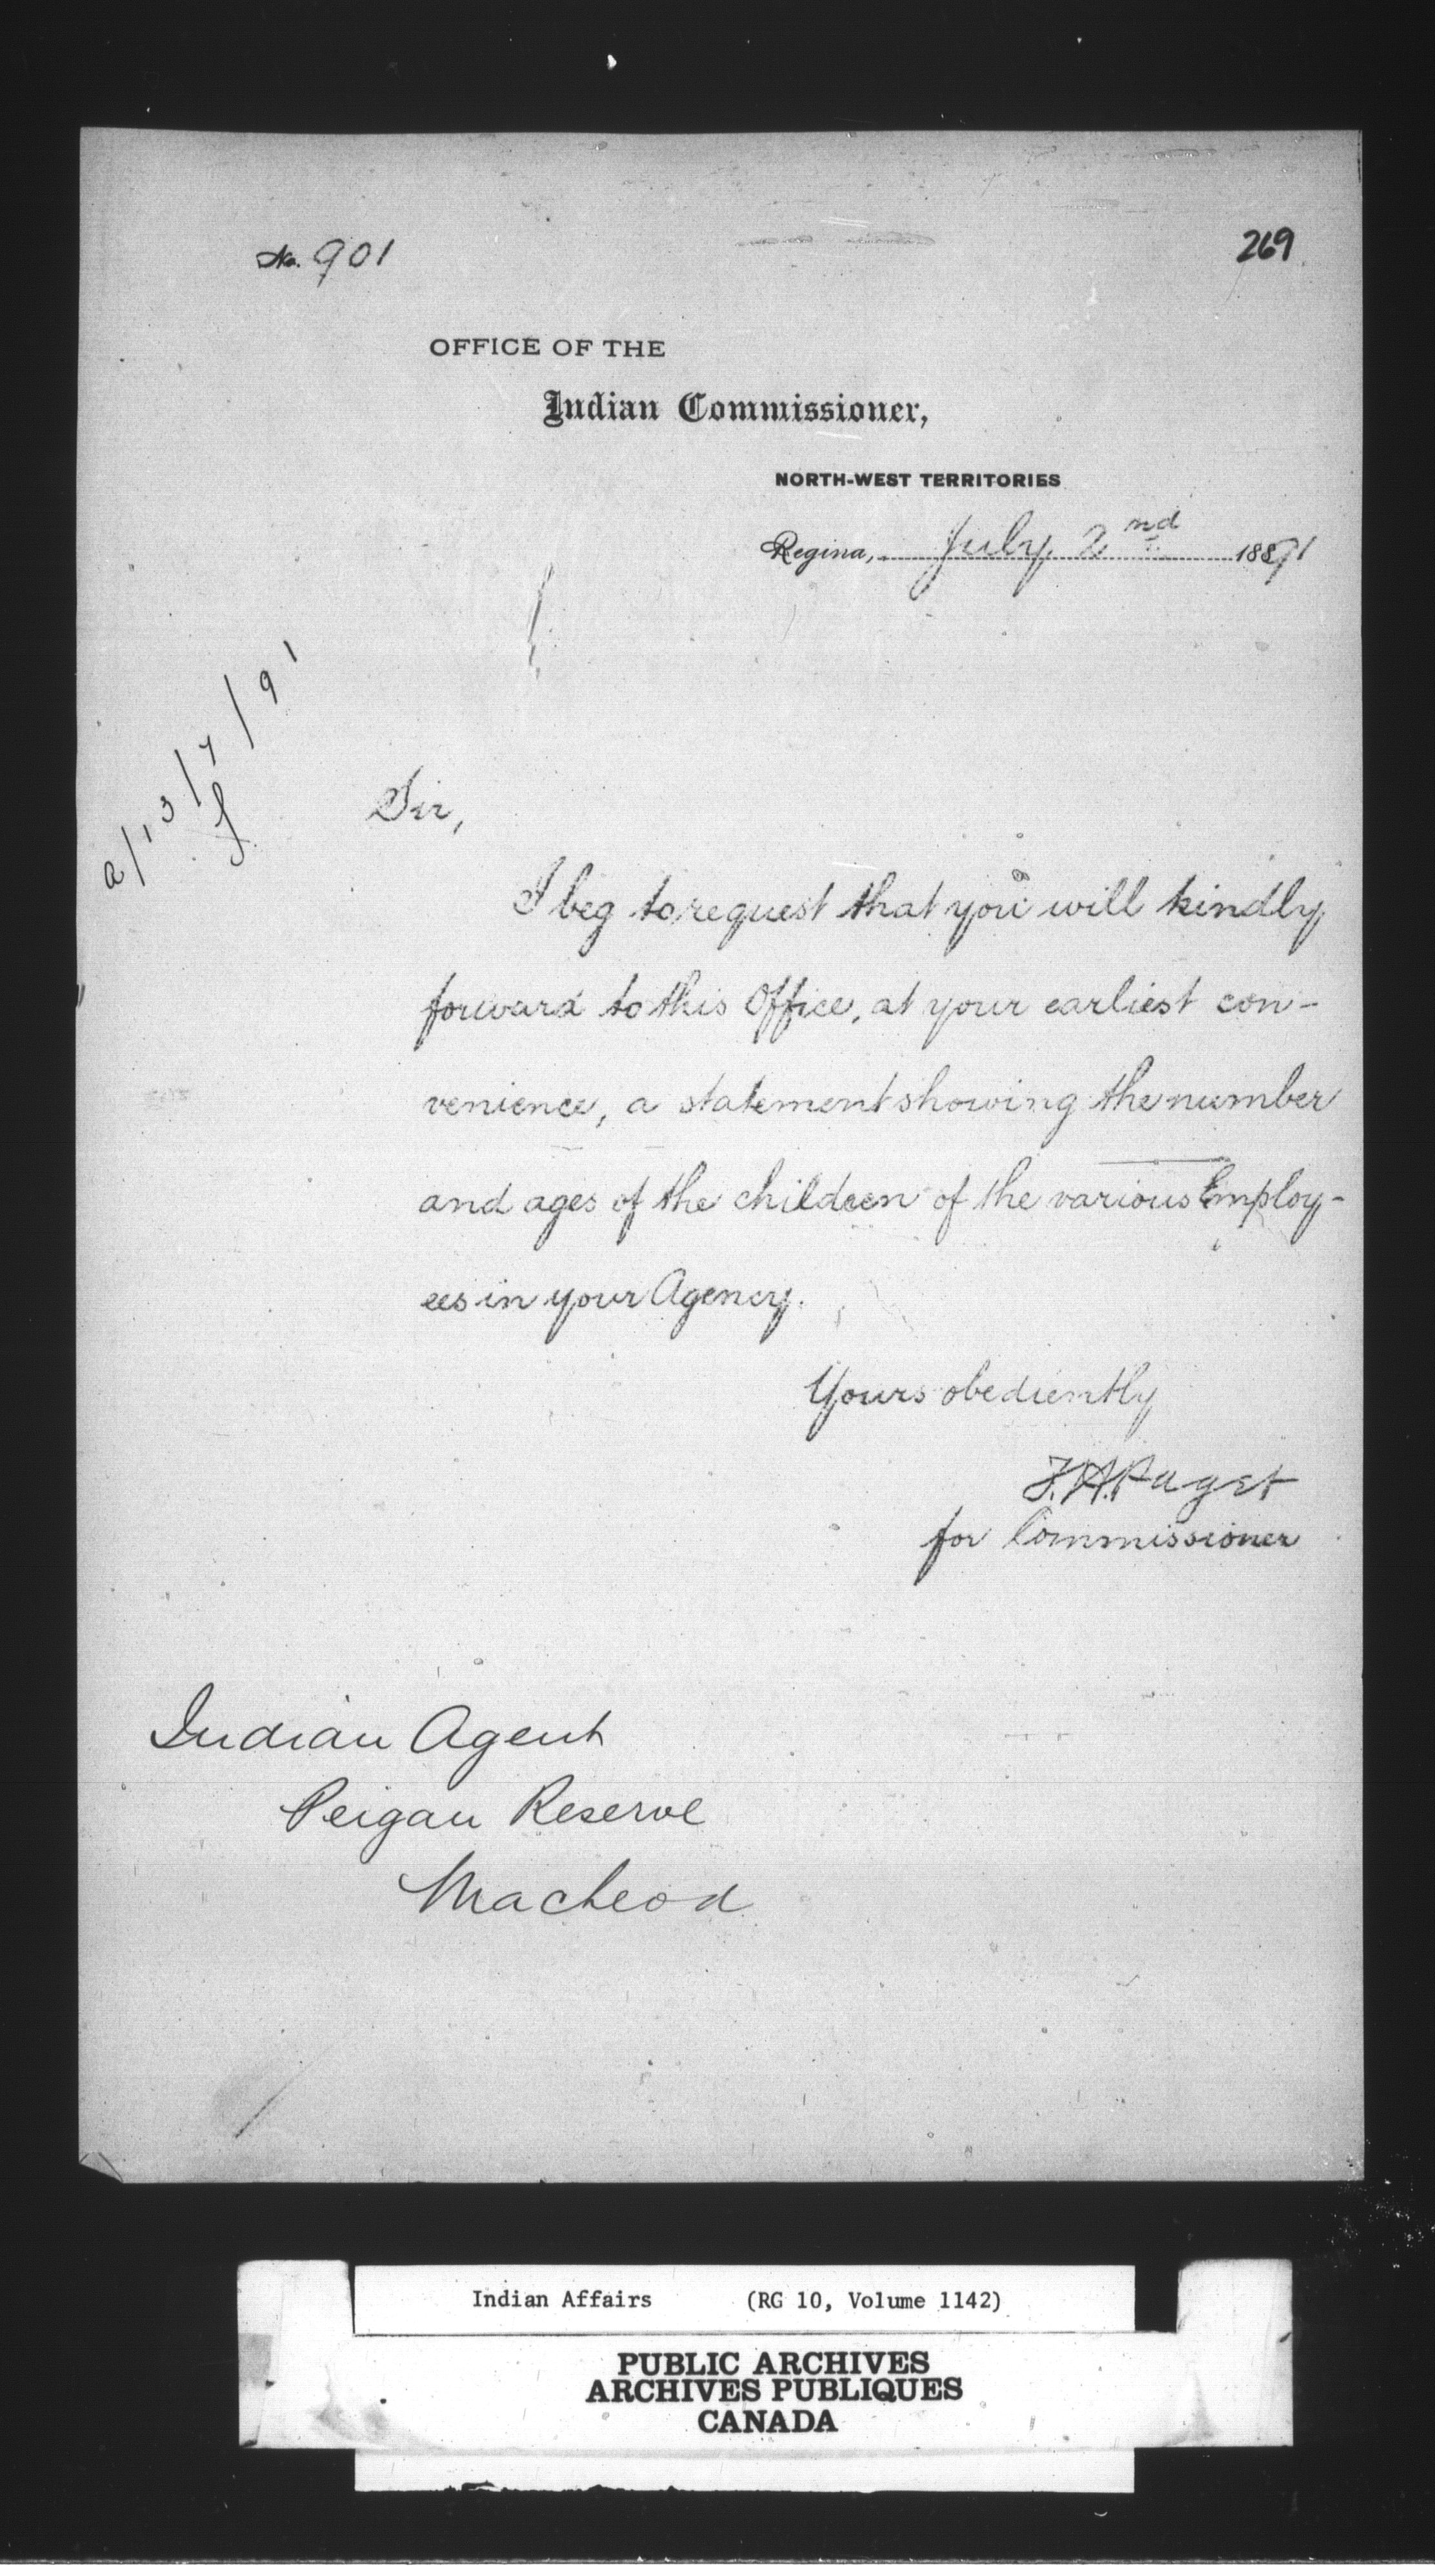 No. 901
269
OFFICE OF THE
Indian Commissioner,
NORTH-WEST TERRITORIES
Regina, July 2nd 1891
a/13/7/91
Sir,
I beg to request that you will kindly
forward to this Office, at your earliest con-
venience, a statement showing the number
and ages of the children of the various Employ-
ees in your Agency.
Yours obediently
F.H. Paget
for Commissioner
Indian Agent
Peigan Reserve
Macleod
Indian Affairs (RG 10, Volume 1142)
PUBLIC ARCHIVES
ARCHIVES PUBLIQUES
CANADA